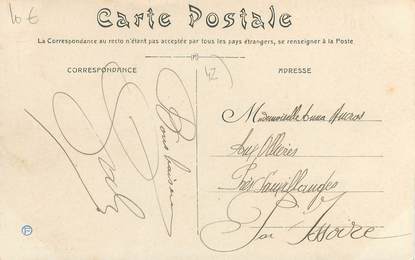 10 €
Carte Postale
La Correspondance au recto n'étant pas acceptée par tous les pays étrangers, se renseigner à la Poste
CORRESPONDANCE
ADRESSE
Bons baisers
Mademoiselle Anna
Aux Ollières
Près Sauxillanges
Par Issoire